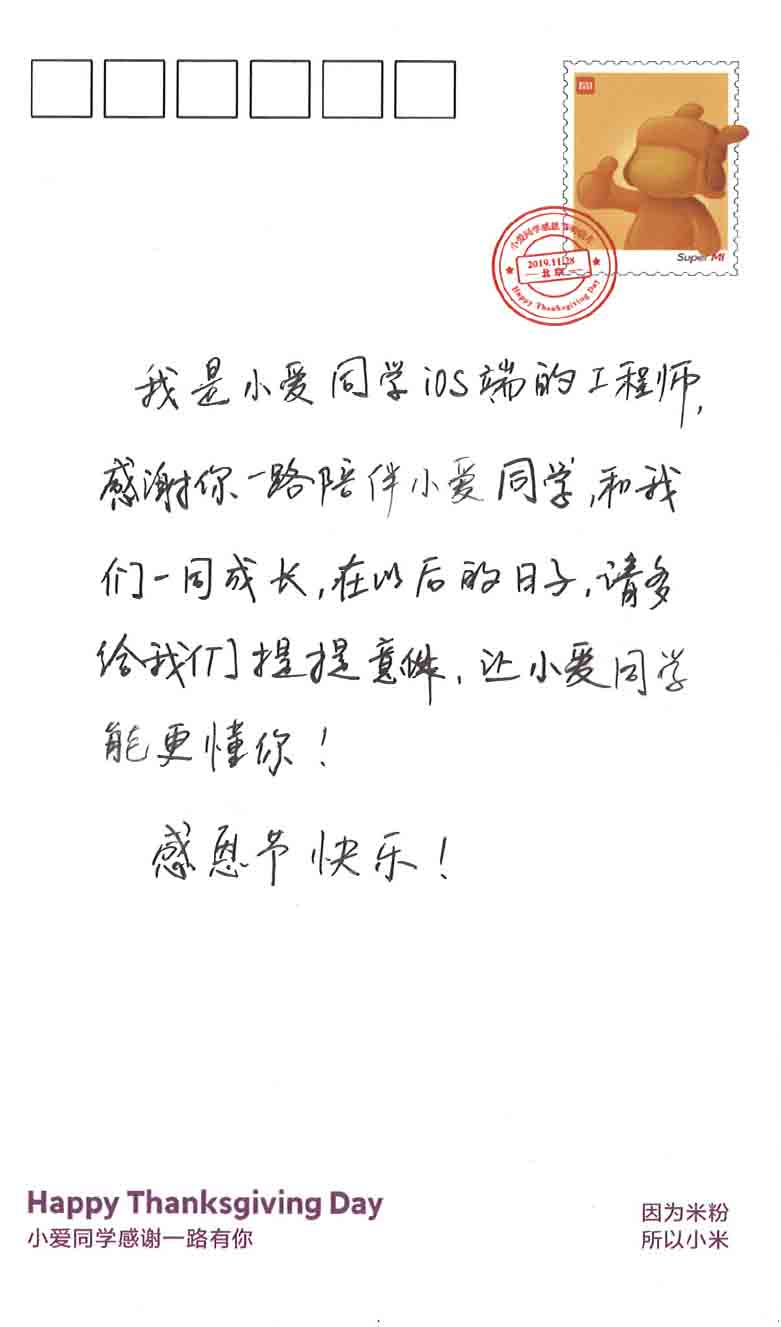 MI
Super MI
小爱同学感恩节明信片
2019.11.28
北京
Happy Thanksgiving Day
我是小爱同学iOS端的工程师,
感谢你一路陪伴小爱同学,和我
们一同成长,在以后的日子,请多
给我们提提意件,让小爱同学
能更懂你!
感恩节快乐!
Happy Thanksgiving Day
小爱同学感谢一路有你
因为米粉
所以小米